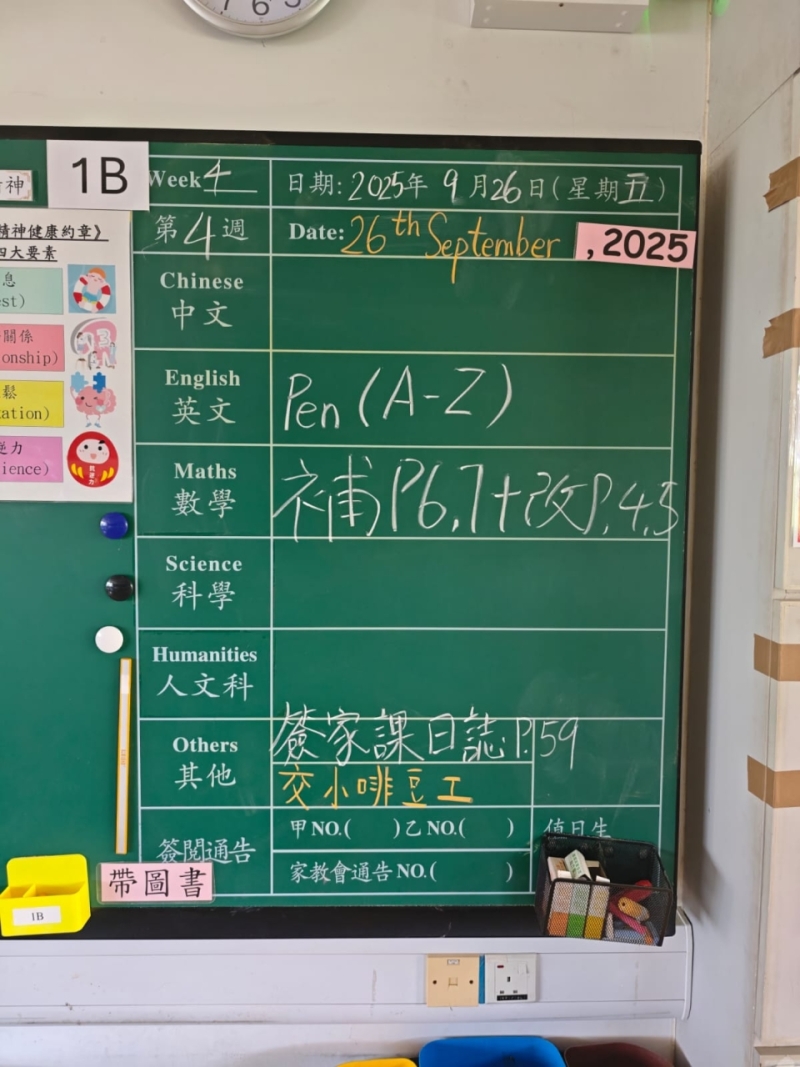 神
1B
Week 4
日期: 2025年 9月26日(星期五)
精神健康約章》
四大要素
第4週
Date: 26th September , 2025
息
est)
關係
onship)
鬆
ation)
逆力
ience)
Chinese
中文
English
英文
Pen (A-Z)
Maths
數學
補P6,7+改P.4,5
Science
科學
Humanities
人文科
Others
其他
簽家課日誌 P.159
交小啡豆工
簽閱通告
甲NO.( )乙NO.( )
值日生
家教會通告NO.( )
帶圖書
1B